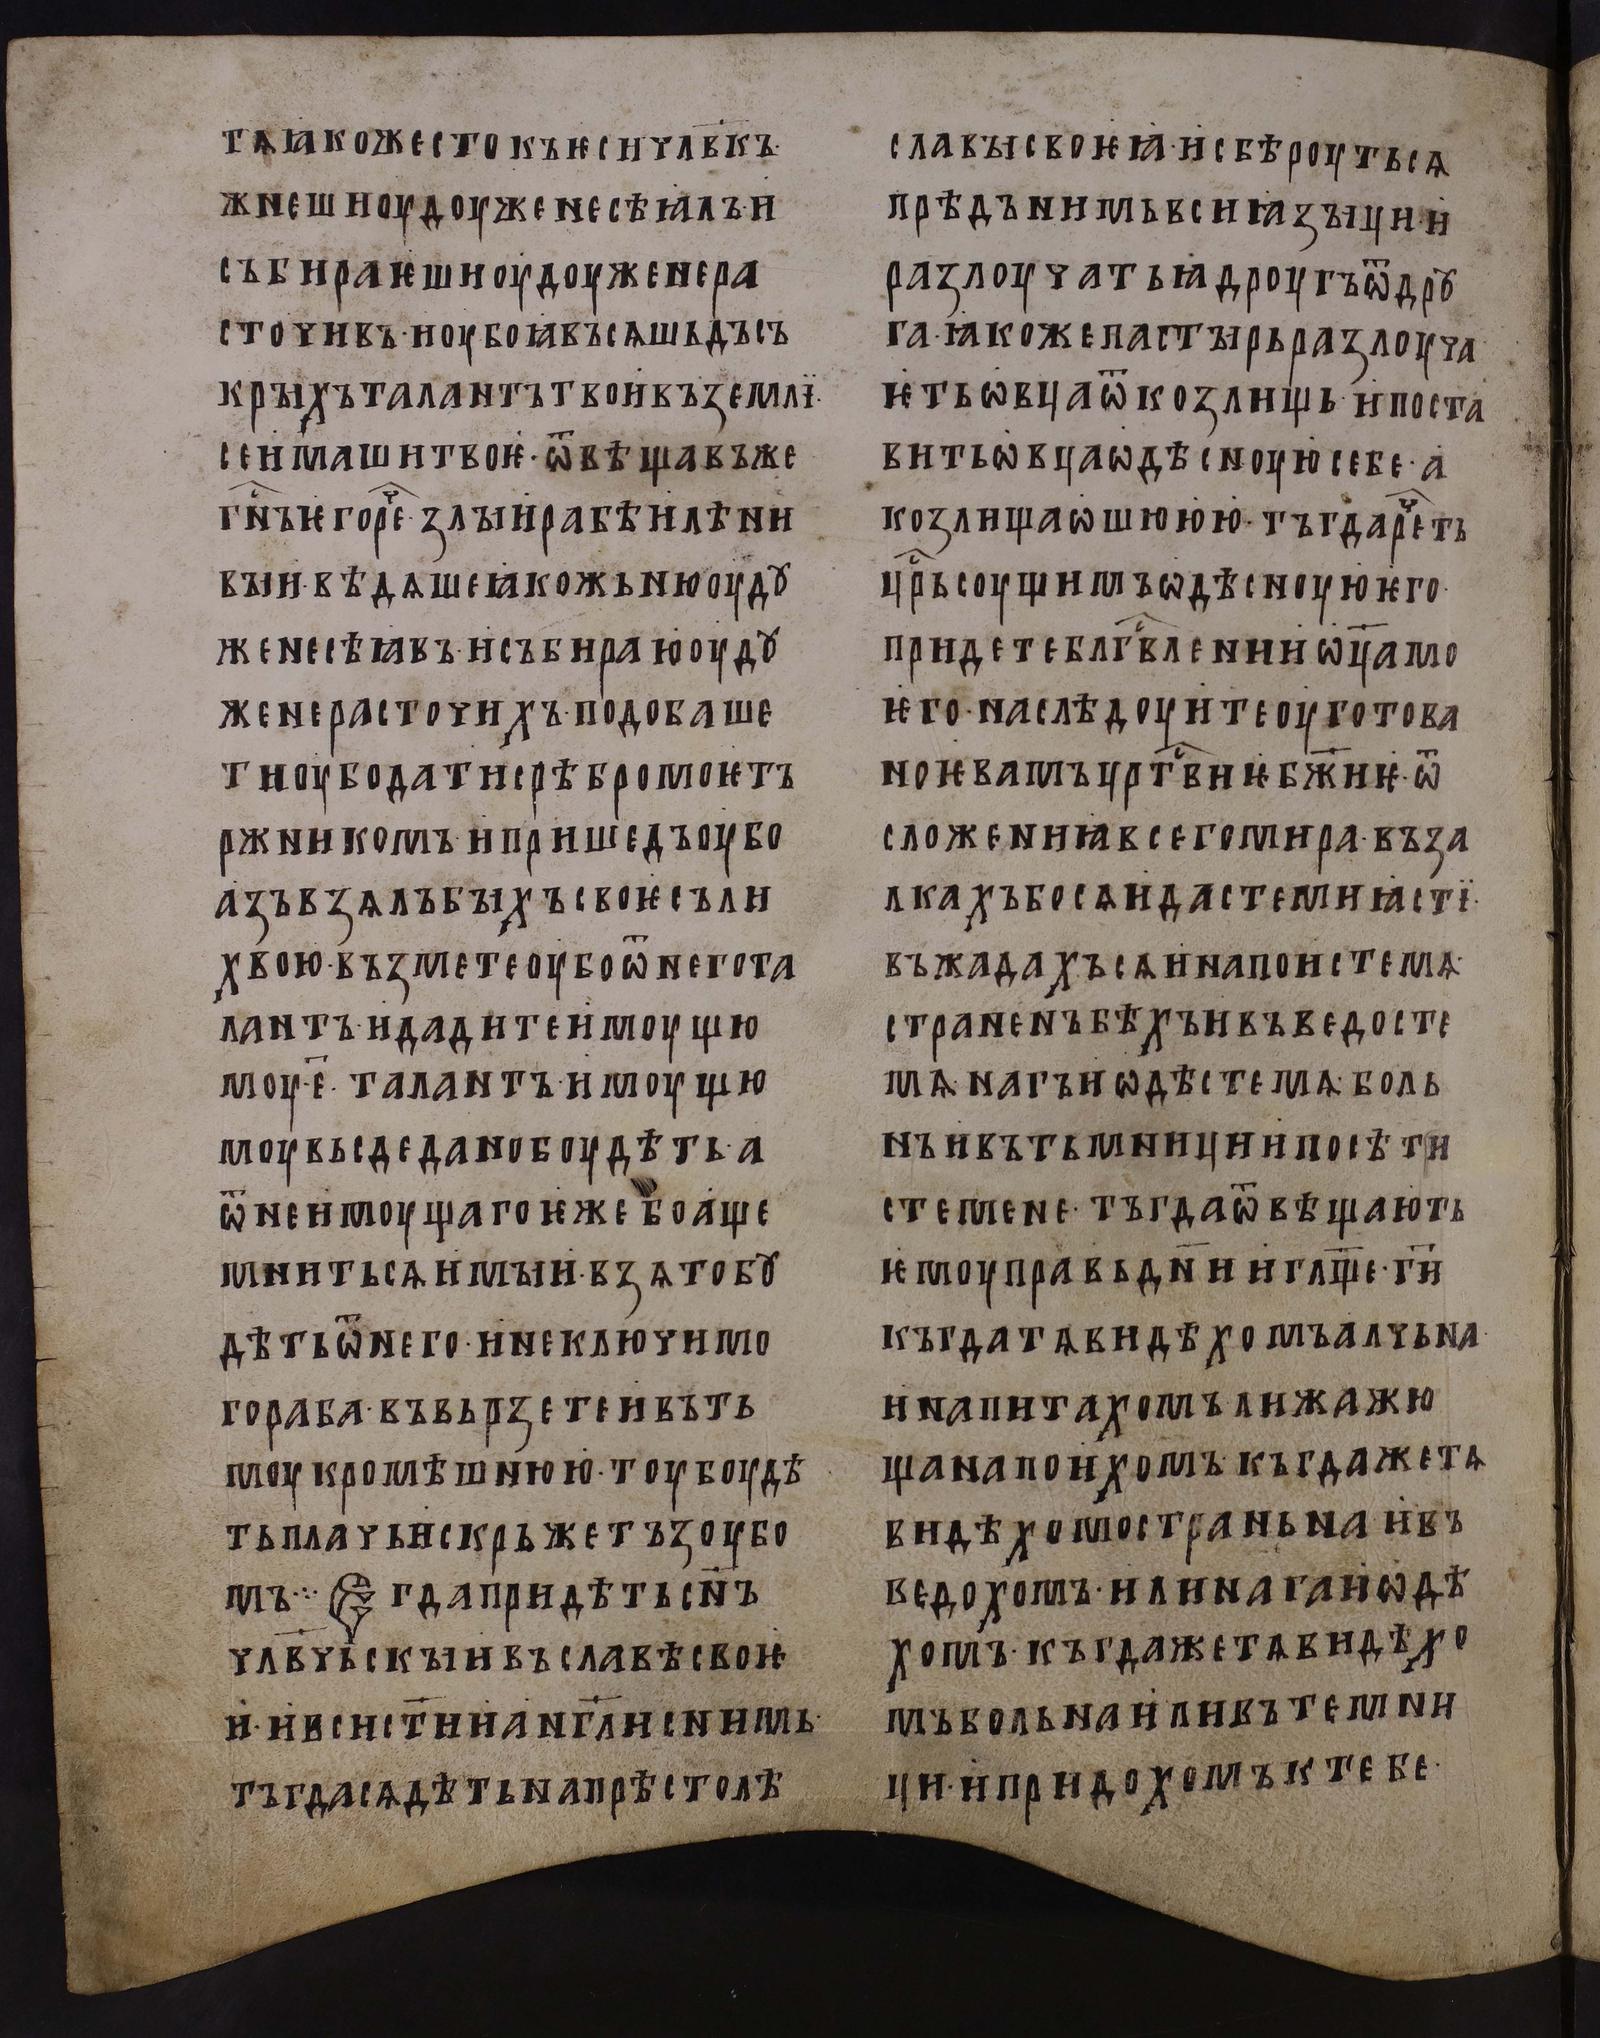 тѧꙗкожестокъѥсичл҃вкъ·
жнешиоудоуженесѣꙗлъ·и
събираѥшиоудоуженера
сточивъ·ноубоꙗвъсѧшьдъсъ
крꙑхъталантътвоивъземлї·
сеимашитвоѥ·ѿвѣщавъже
гⷭ҇нъѥгорⷱ҇е·злꙑирабѣилѣни
вꙑи·вѣдѧшеꙗкожьнюоудꙋ
женесѣꙗвъ·исъбираюоудꙋ
женерасточихъ·подобаше
тиоубодатисрѣбромоѥтъ
ржникомъ·ипришедъоубо
азъвзѧлъбꙑхъсвоѥсъли
хвою·възметеоубоѿнегота
лантъ·идадитеимоущю
моу·е҃·талантъ·имоущю
моувьсдеданобоудѣть·а
ѿнеимоущагоѥжебоаще
мнитьсѧимꙑи·взѧтобꙋ
дѣтьѿнего·инеключимо
гораба·въвьрзетеивъть
моукромѣшнюю·тоубоудѣ
тьплачьискрьжетъзоубо
мъ·:· Єгдапридѣтьсн҃ъ
чл҃вчьскꙑивъславѣсвоѥ
и·ивсист҃иианг҃лиснимь·
тъгдасѧдѣтьнапрѣстолѣ
славꙑсвоѥꙗ·исбѣроутьсѧ
прѣдънимьвсиꙗзꙑци·и
разлоучатьꙗдроугъѿдрꙋ
га·ꙗкожепастꙑрьразлоуча
ѥтьѡвцаѿкозлищь·ипоста
витьѡвцаѡдѣсноуюсебе·а
козлищаѡшююю·тъгдарⷱ҇еть
црⷭ҇ьсоущимъѡдѣсноуюѥго·
придетеблгⷭ҇влениѝѡц҃амо
ѥго·наслѣдоуитеоуготова
ноѥвамъцртⷭ҇виѥбж҃иѥ·ѿ
сложениꙗвсегомира·въза
лкахъбосѧидастемиꙗстї·
въжадахъсѧинапоистемѧ·
страненъбѣхъивъведосте
мѧ·нагъиѡдѣстемѧ·боль
нъивътьмницииипосѣти
стемене·тъгдаѿвѣщають
ѥмоуправьдн҃иигл҃ще·г҃и
къгдатѧвидѣхомъалчьна·
инапитахомълижажю
щанапоихомъ·къгдажетѧ
видѣхомостраньнаивъ
ведохомъ·илинагаиѡдѣ
хомъ·къгдажетѧвидѣхо
мъбольнаиливътемни
ци·ипридохомъктебе·